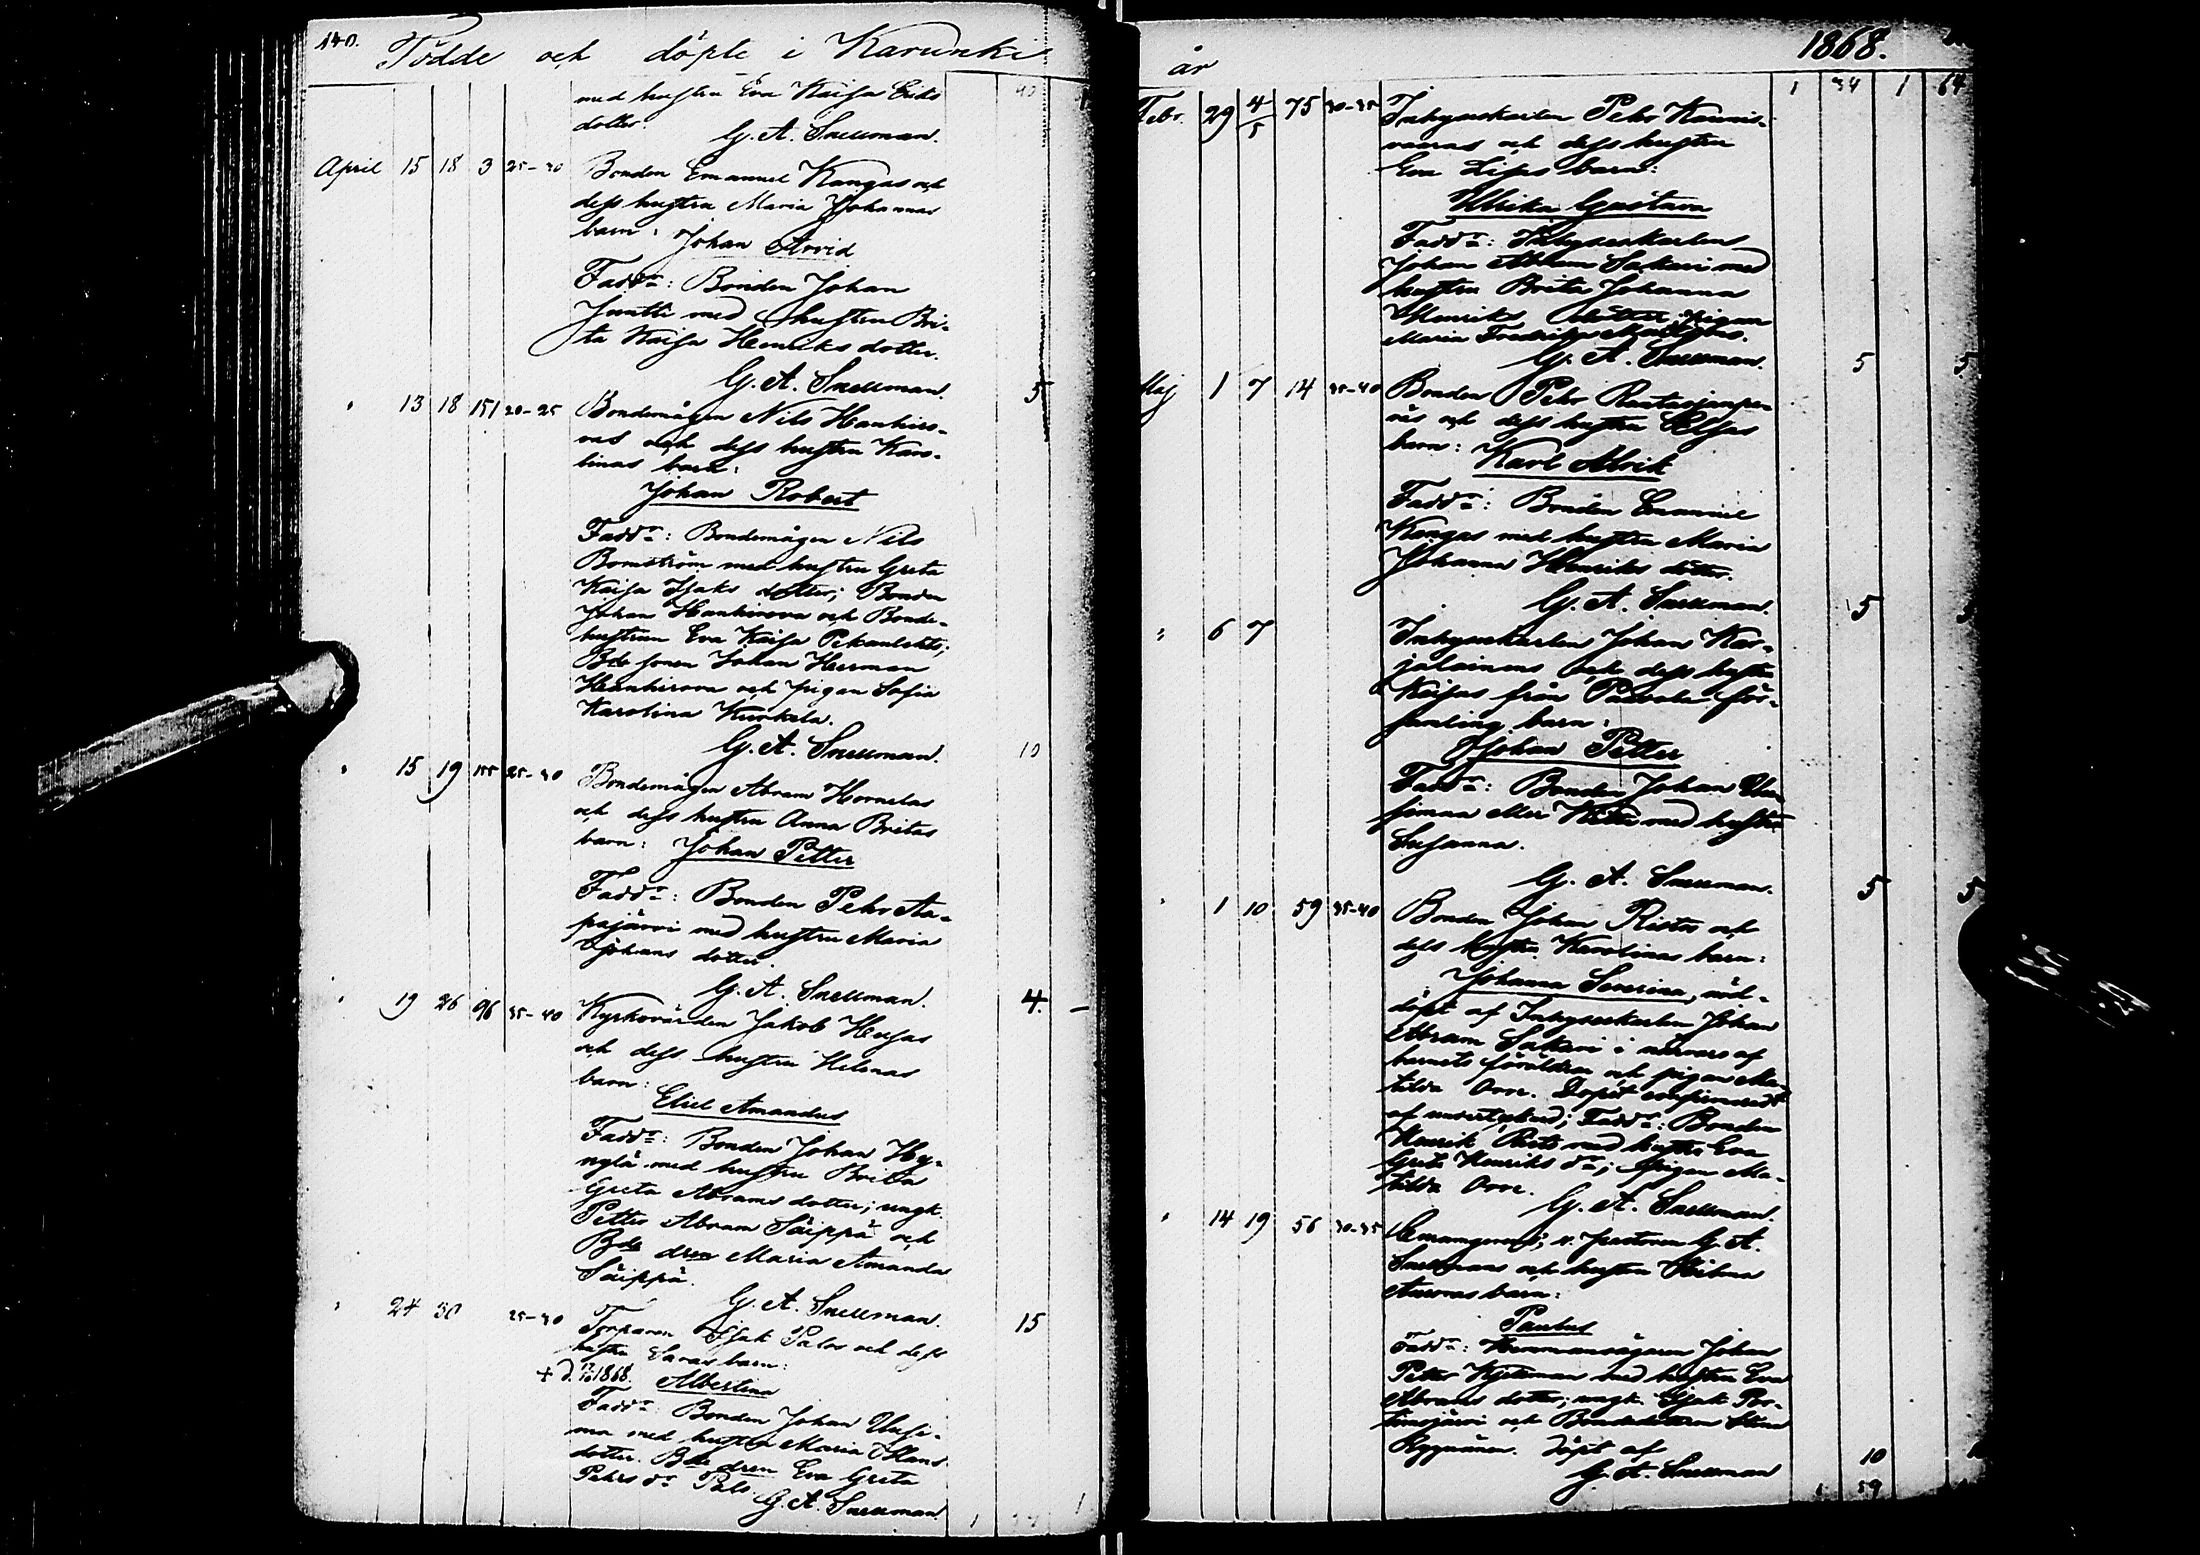 140.
Födde och döpte i Karunki
med hustru Eva Kaisa Eriks
dotter.
G. A. Snellman.
April 15 18 3 25-30 Bonden Emanuel Kangas och
dess hustru Maria Johannas
barn: Johan Arvid
Faddr: Bonden Johan
Juntti med hustru Bri-
ta Kaisa Henriks dotter.
G. A. Snellman. 5
" 13 18 151 20-25 Bondemågen Nils Hanhiro-
vas och dess hustru Karo-
linas barn:
Johan Robert
Faddr: Bondemågen Nils
Bomström med hustru Greta
Kaisa Isaks dotter; Bonden
Johan Hanhirova och Bonde-
hustrun Eva Kaisa
Bde sonen Johan Herman
Hanhirova och pigan Sofia
Karolina Kurkela.
G. A. Snellman. 10
" 15 19 155 25-30 Bondemågen Abram Hornelas
och dess hustru Anna Britas
barn: Johan Petter
Faddr: Bonden Pehr Aa-
pajärvi med hustru Maria
Johans dotter.
G. A. Snellman. 4
" 19 26 96 35-40 Kyrkovärden Jakob Heijas
och dess hustru Helenas
barn:
Eliel Amandus
Faddr: Bonden Johan Hy-
nylä med hustru Brita
Greta Abrams dotter; ungk.
Petter Abram Säippä och
Bde dren Maria Amanda
Säippä.
G. A. Snellman. 15
" 24 30 25-30 Torparen Isak Palos och dess
hustru Saras barn:
+ d. 1868. Albertina
Faddr: Bonden Johan Uusi-
ma med hustru Maria Hans
dotter. Bde dren Eva Greta
Pehrs dr Palo.
G. A. Snellman
år 1868.
1 34 1 64
Febr. 29 4/5 75 30-35 Inhyseskarlen Pehr Kaunis-
vaaras och dess hustru
Eva Lisas barn:
Ulrika Gustava
Faddr: Inhyseskarlen
Johan Abram Sakari med
hustru Brita Johanna
Henriks dotter; pigan
Maria Fredrika
G. A. Snellman. 5 5
Maj 1 7 14 35-40 Bonden Pehr Rautiojanpe-
räs och dess hustru Elsas
barn:
Karl Alrik
Faddr: Bonden Emanuel
Kangas med hustru Maria
Johanna Henriks dotter.
G. A. Snellman. 5 5
" 6 7 Inhyseskarlen Johan Kar-
jalainens och dess hustru
Kaisas från Paavola för-
samling barn:
Johan Petter
Faddr: Bonden Johan Uu-
simaa eller med hustru
Susanna.
G. A. Snellman. 5 5
" 1 10 59 35-40 Bonden Johan Ristos och
dess hustru Karolinas barn:
Johanna Severina, nöd-
döpt af Inhyseskarlen Johan
Abram Sakari i närvaro af
barnets föräldrar och pigan Ma-
tilda Orre. Dopet confirmeradt
af undertecknad; Faddr: Bonden
Henrik med hustru Eva
Greta Henriks dr; Pigan Ma-
tilda Orre.
G. A. Snellman.
" 14 19 56 30-35 v. pastoren G. A.
Snellmans och hustru Hilma
Auroras barn:
Paulus
Faddr: Johan
Petter med hustru Eva
Abrams dotter; ungk. Isak Por-
timojärvi och Bondedottren Stina
Döpt af
G. A. Snellman 10
59